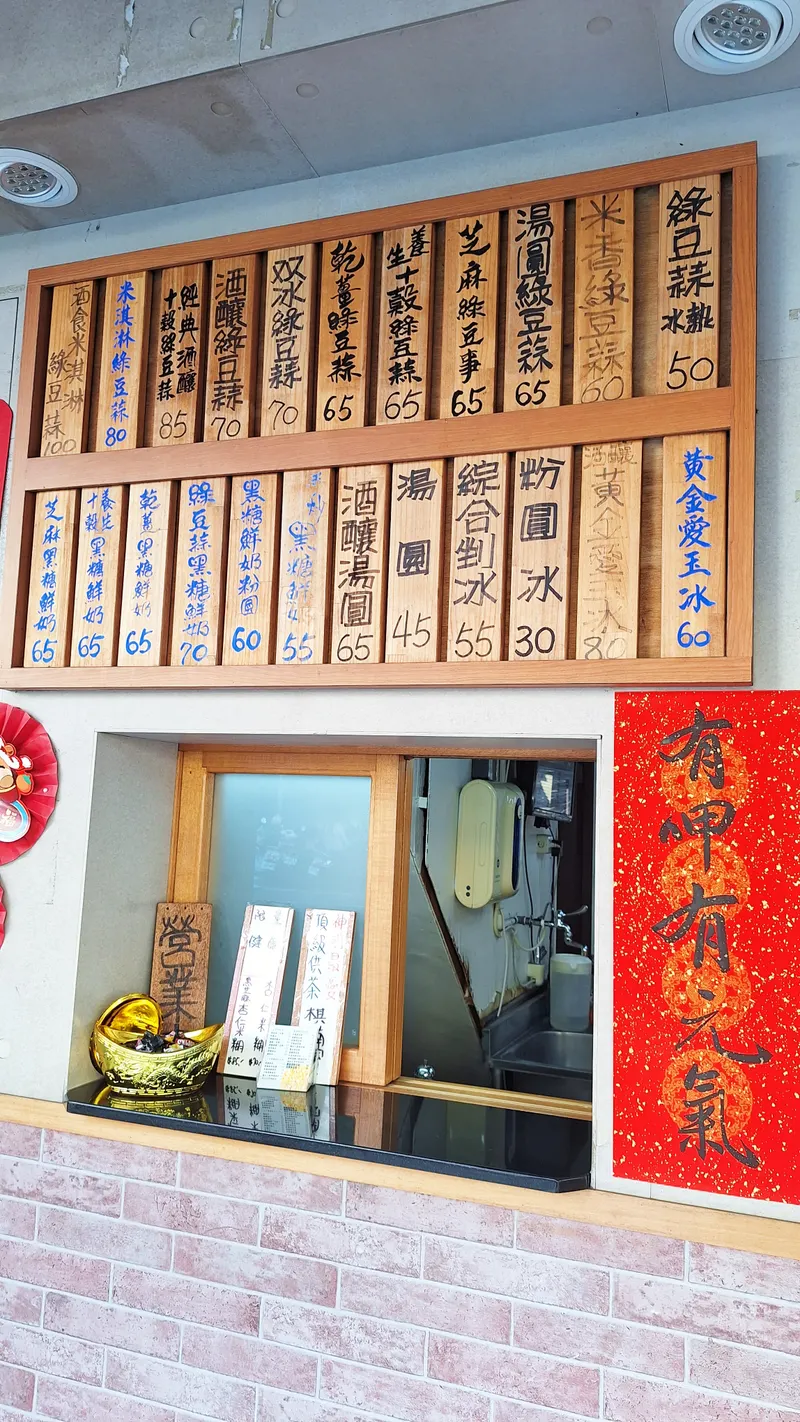 綠豆蒜
冰熱
50
米香綠豆蒜
60
湯圓綠豆蒜
65
芝麻綠豆事
65
養生
十穀綠豆蒜
65
乾薑綠豆蒜
65
双冰綠豆蒜
70
酒釀綠豆蒜
70
經典酒釀
十穀綠豆蒜
85
米淇淋綠豆蒜
80
酒食米淇淋
綠豆蒜
100
黃金愛玉冰
60
酒釀
黃金愛玉冰
80
粉圓冰
30
綜合剉冰
55
湯圓
45
酒釀湯圓
65
黑糖鮮奶
55
黑糖鮮奶粉圓
60
綠豆蒜黑糖鮮奶
70
乾薑黑糖鮮奶
65
養生
十穀黑糖鮮奶
65
芝麻黑糖鮮奶
65
有呷有元氣
營業
頂級供茶
杏仁糊